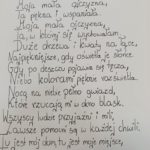 Moja mała ojczyzna,
Ta piękna i wspaniała.
Moja mała ojczyzna,
Ta, w której się wychowałam.
Duże drzewa i kwiaty na łące,
Najpiękniejsze, gdy oświetla je słońce.
Gdy po deszczu pojawia się tęcza,
Niebo kolorami pięknie rozświetla.
Nocą na niebie pełno gwiazd,
Które rzucają mi w okno blask.
Wszyscy ludzie przyjaźni i mili,
Zawsze pomocni są w każdej chwili.
Tu jest mój dom, tu jest moje miejsce,